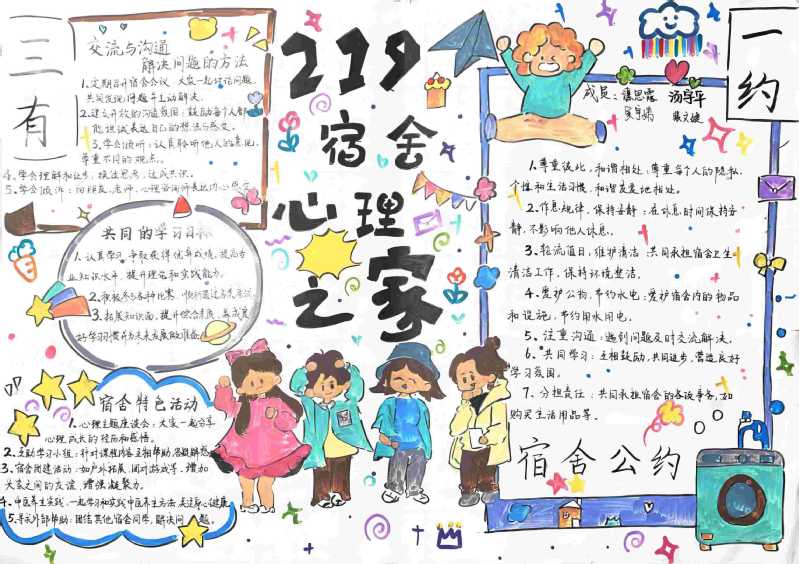 三有
交流与沟通
解决问题的方法
1、定期召开宿舍会议：大家一起讨论问题，
共同发现问题并主动解决。
2、建立开放的沟通氛围：鼓励每个人都
能坦诚表达自己的想法与感受。
3、学会倾听：认真聆听他人的意见，
尊重不同的观点。
4、学会理解和让步，换位思考，达成共识。
5、学会倾诉：向朋友、老师、心理咨询师表达内心
共同的学习目标
1、认真学习，争取获得优异成绩，提高专
业知识水平，提升理论和实践能力。
2、积极参与各种比赛，
3、拓展知识面，提升综合素质，养成良
好学习惯并为未来发展做准备
宿舍特色活动
1、心理主题座谈会：大家一起分享
心理成长的经历和感悟。
2、互助学习小组：针对课程内容互相帮助，答疑解惑
3、宿舍团建活动：如户外拓展、团对游戏等，增加
大家之间的友谊，增强凝聚力。
4、中医养生实践，一起学习和实践中医养生方法，
5、寻求外部帮助：团结其他宿舍同学，解决问题。
219
宿舍
心理
之家
一约
成员：
汤宇平
1、尊重彼此，和谐相处，尊重每个人的隐私、
个性和生活习惯，和谐友爱地相处。
2、作息规律，保持安静：在休息时间保持安
静，不影响他人休息。
3、轮流值日，维护清洁：共同承担宿舍卫生
清洁工作，保持环境整洁。
4、爱护公物，节约水电，爱护宿舍内的物品
和设施，节约用水用电。
5、注重沟通：遇到问题及时交流解决。
6、共同学习：互相鼓励，共同进步，营造良好
学习氛围。
7、分担责任：共同承担宿舍的各项事务，如
购买生活用品等。
宿舍公约